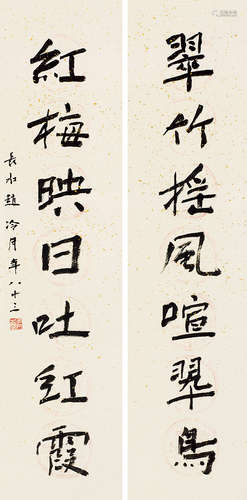 翠竹摇風喧翠鳥
紅梅映日吐紅霞
長水趙冷月年八十三